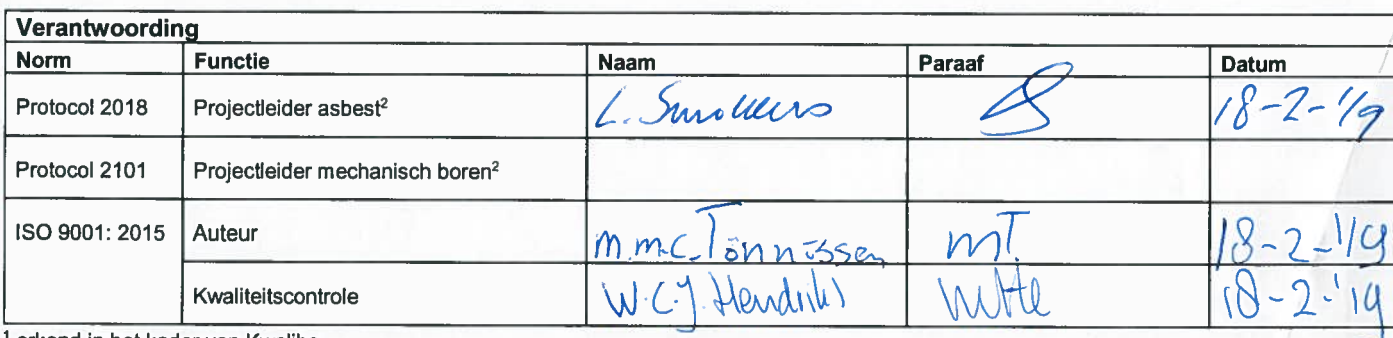 Verantwoording
Norm Functie Naam Paraaf Datum
Protocol 2018 Projectleider asbest² L. Smolders 18-2-'19
Protocol 2101 Projectleider mechanisch boren²
ISO 9001: 2015 Auteur M.M.C. Tönnissen MT. 18-2-'19
Kwaliteitscontrole W.C.J. Hendriks 18-2-'19